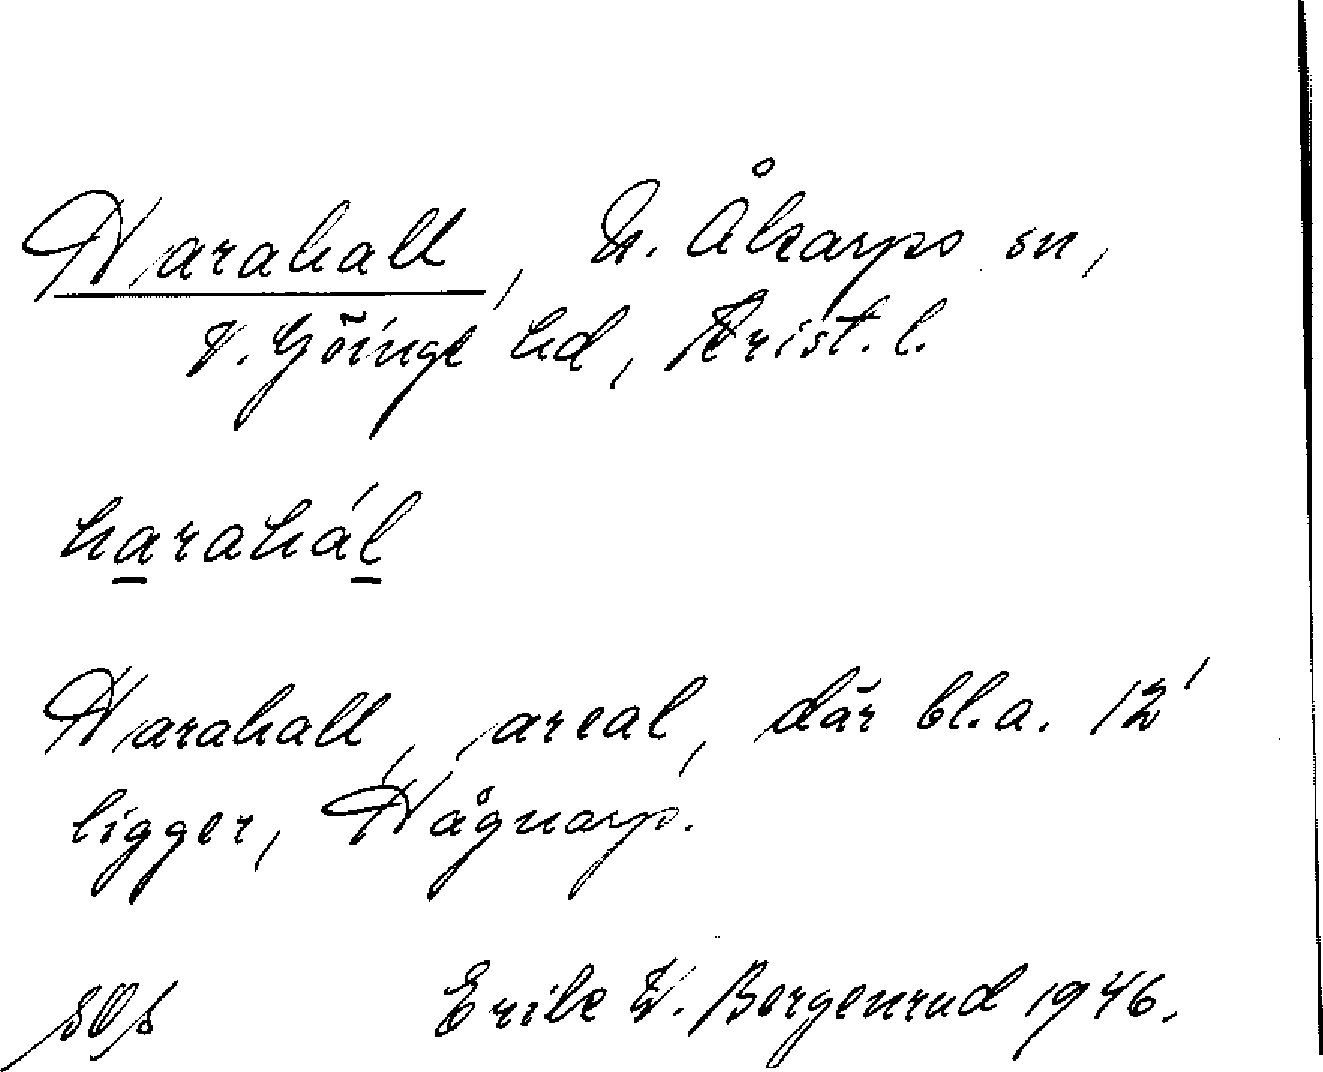 Harahall, N. Åkarps sn,
V. Göinge hd, Krist. l.
harahál
Harahall, areal, där bl.a. 12'
ligger, Hågnarp.
Erik W. Bergenrud 1946.